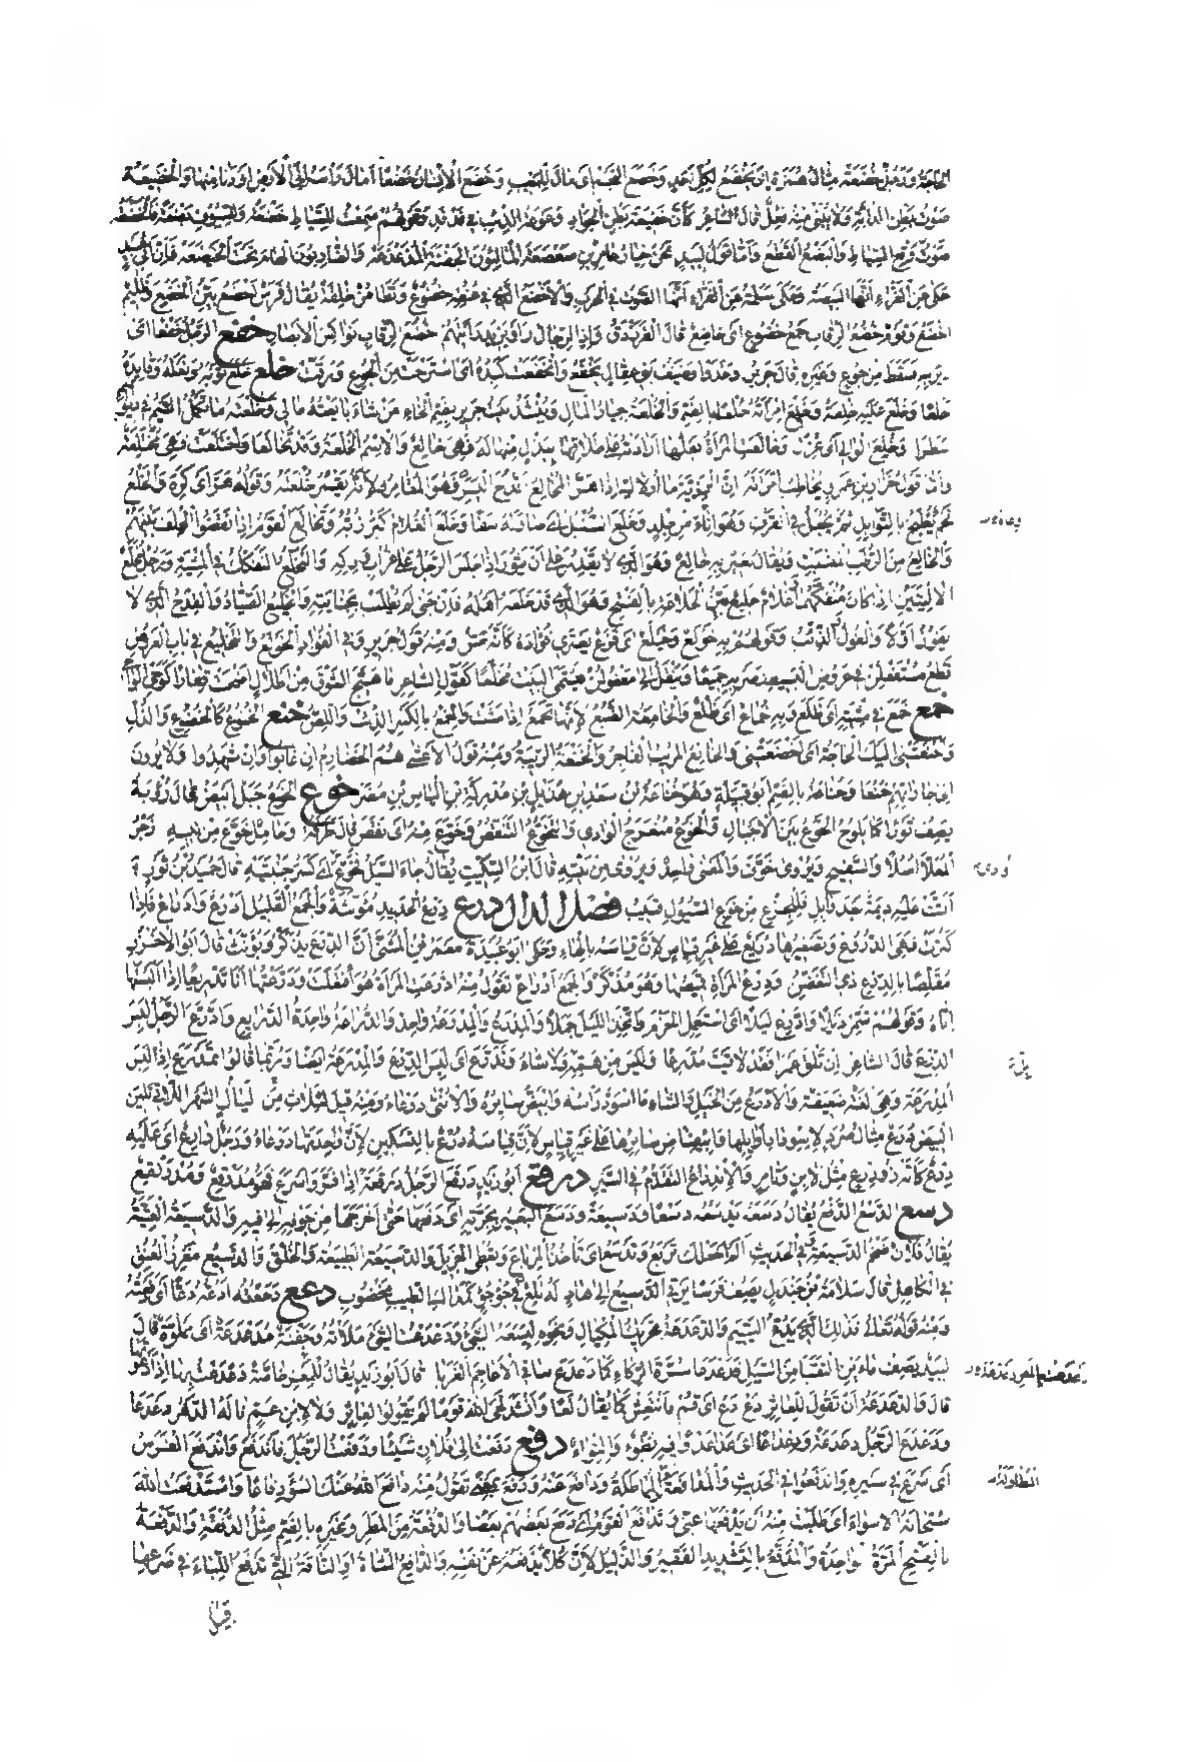 ورجل خضعة مثال همزة اى يخضع لكل احد وخضع النجم اى مال للمغيب وخضع الانسان خضعا امال راسه الى الارض او دنا منها والخضيعة
صوت بطن الدابة ولا يبنى منه فعل قال الشاعر كأن خضيعة بطن الجواد وعوعة الذئب في فدفد وقولهم سمعت للسياط خضعة وللسيوف بضعة فالخضعة
صوت وقع السياط والبضع القطع واما قول لبيد نحن خيار عامر بن صعصعة المطعمون الجفنة المدعدعة والضاربون الهام تحت الخيضعة فان ابا عبيد
حكى عن الفراء انها البيضة وحكى سلمة عن الفراء انها الصوت في الحرب والاخضع الذى في عنقه خضوع وتطامن خلقة يقال فرس اخضع بين الخضع وظليم
اخضع وقوم خضع الرقاب جمع خضوع اى خاضع قال الفرزدق واذا الرجال راوا يزيد رايتهم خضع الرقاب نواكس الابصار خفع الرجل خفعا اى
سقط من جوع وغيره قال جرير وغدوا وضيف بنى عقال يخفع وانخفعت كبده اى استرخت من الجوع ورقت خلع خلع ثوبه ونعله وقائده
خلعا وخلع عليه خلعة وخلع امرأته خلعا بالضم والخلعة خيار المال وينشد بيت جرير بضم الخاء من شاء بايعته مالى وخلعته ما تكمل التيم في ديوانهم
سطرا وخلع الوالى اى عزل وخالعت المرأة بعلها ارادته على طلاقها ببذل منها له فهى خالع والاسم الخلعة وقد تخالعا واختلعت فهى مختلعة
لحم يطبخ بالتوابل ثم يجعل في القرف وهو اناء من جلد وخلع السنبل اى صار له سفا وخلع الغلام كبر زبه وتخالع القوم اذا نقضوا الحلف بينهم
والخالع من الرطب المنسبت ويقال بعير به خالع وهو الذى لا يقدر على ان يثور اذا جلس الرجل على غراب وركه والتخلع التفكك في المشية ورجل مخلع
الاليتين اذا كان منفكهما وغلام خليع بين الخلاعة بالفتح وهو الذى قد خلعه اهله فان جنى لم يطلب بجنايته والخليع الصياد والقدح الذى لا
يفوز اولا والغول والذئب وقولهم به خولع وخيلع اى فزع يعترى فؤاده كأنه مس ومنه قول جرير وفي الفؤاد الخولع والتخليع في باب العروض
قطع مستفعلن في عروض البسيط وضربه جميعا وينقل الى مفعولن فيسمى البيت مخلعا كقول الشاعر ما هيج الشوق من اطلال اضحت قفارا كوحى الواحى
خمع خمع في مشيته اى ظلع وبه خماع اى ظلع والخامعة الضبع لانها تخمع اذا مشت والخمع بالكسر الذئب واللص خنع الخنوع كالخضوع والذل
وخنعتنى اليك الحاجة اى اخضعتنى والخانع المريب الفاجر والخنعة الريبة ومنه قول الاعشى هم الخضارم ان غابوا وان شهدوا ولا يرون
الى جاراتهم خنعا وخناعة بالضم ابو قبيلة وهو خناعة بن سعد بن هذيل بن مدركة بن الياس بن مضر خوع الخوع جبل ابيض قال رؤبة
يصف ثورا كما يلوح الخوع بين الاجبال والخوع منعرج الوادى والتخوع التنقص وخوع منه اى نقص قال طرفة وجامل خوع من نيبه زجر
المعلى اصلا والسفيح ويروى خوف والمعنى واحد ويروى من نبته قال ابن السكيت يقال جاء السيل فخوع الوادى اى كسر جنبتيه قال حميد بن ثور
الثت عليه ديمة بعد وابل فللجزع من خوع السيول قسيب فصل الدال درع درع الحديد مؤنثة والجمع القليل ادرع وادراع فاذا
كثرت فهى الدروع وتصغيرها دريع على غير قياس لان قياسه بالهاء وحكى ابو عبيدة معمر بن المثنى ان الدرع يذكر ويؤنث قال ابو الاخزر
مقلصا بالدرع ذى التغضن ودرع المرأة قميصها وهو مذكر والجمع ادراع تقول منه ادرعت المرأة وهو افتعلت ودرعتها انا تدريعا اذا البستها
اياه وقولهم شمر ذيلا وادرع ليلا اى استعمل الحزم واتخذ الليل جملا والمدرع والمدرعة واحد والدراعة واحدة الدراريع وادرع الرجل لبس
الدرع قال الشاعر ان تلق عمرا فقد لاقيت مدرعا وليس من همه ابل ولا شاء وتدرع اى لبس الدرع والمدرعة ايضا وربما قالوا تمدرع اذا لبس
المدرعة وهى لغة ضعيفة والادرع من الخيل والشاء ما اسود راسه وابيض سائره والانثى درعاء ومنه قيل لثلاث من ليالى الشهر اللاتى تلين
البيض درع مثال صرد لاسوداد اوائلها وابيضاض سائرها على غير قياس لان قياسه درع بالتسكين لان واحدتها درعاء ورجل دارع اى عليه
درع كأنه ذو درع مثل لابن وتامر والاندراع التقدم في السير درقع ابو زيد درقع الرجل درقعة اذا فر واسرع فهو مدرقع ومدرنقع
دسع الدسع الدفع يقال دسعه يدسعه دسعا ودسيعة ودسع البعير بجرته اى دفعها حتى اخرجها من جوفه الى فيه والدسيعة العطية
يقال فلان ضخم الدسيعة وفي الحديث الم اجعلك تربع وتدسع اى تاخذ المرباع وتعطى الجزيل والدسيعة الطبيعة والخلق والدسيع مغرز العنق
في الكاهل قال سلامة بن جندل يصف فرسا يرقى الدسيع الى هاد له تلع في جؤجؤ كمداك الطيب مخضوب دعع دععته ادعه دعا اى دفعته
ومنه قوله تعالى فذلك الذى يدع اليتيم والدعدعة تحريك المكيال ونحوه ليسعه الشئ ودعدعت الشئ ملأته وجفنة مدعدعة اى مملوة قال
لبيد يصف ماءين التقيا من السيل فدعدعا سرة الركاء كما دعدع ساقى الاعاجم الغربا قال ابو زيد يقال للمعز خاصة دعدعت بها اذا دعوتها
قال والدعدعة ان تقول للعاثر دع دع اى قم فانتعش كما يقال لعا وانشد لحى الله قوما لم يقولوا لعاثر ولا لابن عم ناله الدهر دعدعا
ودعدع الرجل دعدعة ودعداعا اى عدا عدوا فيه بطوء والتواء دفع دفعت الى فلان شيئا ودفعت الرجل فاندفع واندفع الفرس
اى اسرع في سيره واندفعوا في الحديث والمدافعة المماطلة ودافع عنه ودفع بمعنى تقول منه دافع الله عنك السوء دفاعا واستدفعت الله
سبحانه الاسواء اى طلبت منه ان يدفعها عنى وتدافع القوم اى دفع بعضهم بعضا والدفعة من المطر وغيره بالضم مثل الدفقة والدفعة
بالفتح المرة الواحدة والمدفع بالتشديد الفقير والذليل لان كلا يدفعه عن نفسه والدافع الشاة او الناقة التى تدفع اللبأ في ضرعها
قبيل